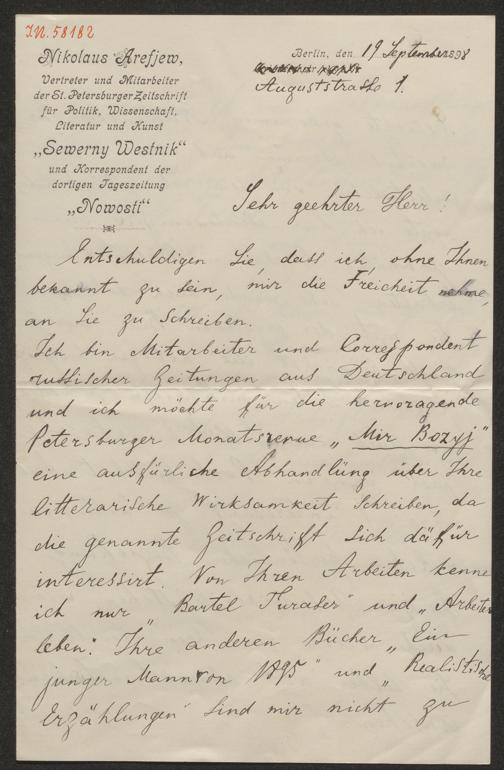 I.N. 58182
Nikolaus Arefjew,
Vertreter und Mitarbeiter
der St. Petersburger Zeitschrift
für Politik, Wissenschaft,
Literatur und Kunst
„Sewerny Westnik“
und Korrespondent der
dortigen Tageszeitung
„Nowosti“
Berlin, den 19 September 1898
Auguststrasse 1.
Sehr geehrter Herr!
Entschuldigen Sie, dass ich, ohne Ihnen
bekannt zu sein, mir die Freicheit nehme,
an Sie zu schreiben.
Ich bin Mitarbeiter und Correspondent
russischer Zeitungen aus Deutschland
und ich möchte für die hervoragende
Petersburger Monatsrevue „Mir Bozyj“
eine ausfürliche Abhandlüng über Ihre
litterarische Wirksamkeit schreiben, da
die genannte Zeitschrift sich däfür
interessirt. Von Ihren Arbeiten kenne
ich nur „Bartel Turaser“ und „Arbeiter
leben“. Ihre anderen Bücher „Ein
junger Mann von 1895“ und „Realistische
Erzählungen“ sind mir nicht zu